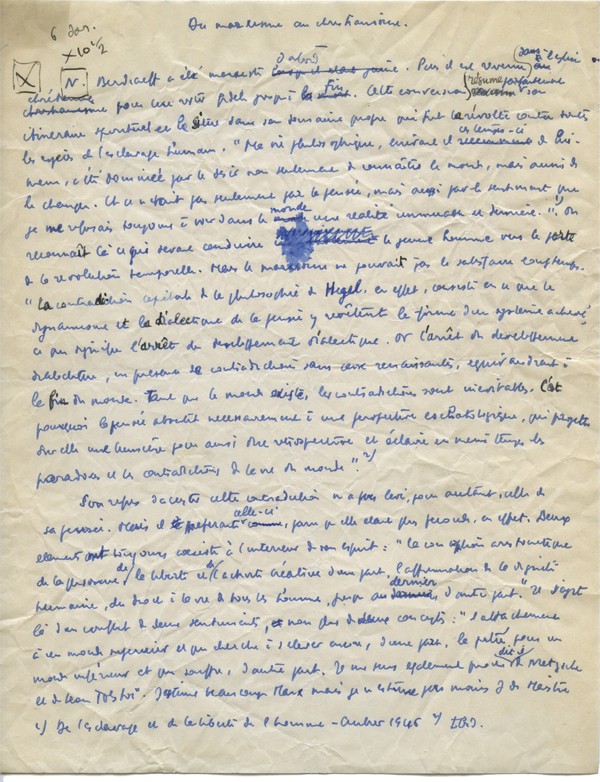 Du marxisme au christianisme.
6 Jar.
X 10 1/2
X N. Berdiaeff a été marxiste d'abord lorsqu'il était jeune. Puis il est revenu au (sans l'église
chrétienne christianisme pour lui rester fidèle jusqu'à la fin. Cette conversion (résume parfaitement son
itinéraire spirituel et le situe dans son domaine propre qui fut la révolte contre toutes
les espèces d'esclavage humain. "Ma vie philosophique, écrivait-il ces temps-ci
a été dominée par le désir non seulement de connaître le monde, mais aussi de
le changer. Et ce n'était pas seulement par la pensée, mais aussi par le sentiment que
je me refusais toujours à voir dans le monde une réalité immuable et dernière." 1) On
reconnaît là ce qui devait conduire le jeune homme vers le parti
de la révolution temporelle. Mais le marxisme ne pouvait pas le satisfaire longtemps.
"La contradiction capitale de la philosophie de Hegel, en effet, consiste en ce que le
dynamisme et la dialectique de la pensée y revêtent la forme d'un système achevé,
ce qui signifie l'arrêt du développement dialectique. Or l'arrêt du développement
dialectique, en présence de contradictions sans cesse renaissantes, équivaudrait à
la fin du monde. Tant que le monde existe, les contradictions sont inévitables. C'est
pourquoi la pensée aboutit nécessairement à une perspective eschatologique, qui projette
sur elle une lumière pour ainsi dire rétrospective et éclaire en même temps les
paradoxes et les contradictions de la vie du monde". 2)
Son refus d'accepter cette contradiction n'a pas levé, pour autant, celle de
sa pensée. Mais il préférait celle-ci parce qu'elle était plus féconde, en effet. Deux
éléments ont toujours coexisté à l'intérieur de son esprit : "la conception aristocratique
de la personne, de la liberté et de l'activité créatrice d'une part, l'affirmation de la dignité
humaine, du droit à la vie de tous les hommes, jusqu'au dernier, d'autre part." Il s'agit
là d'un conflit de deux sentiments, et non plus de deux concepts : "l'attachement
à un monde supérieur et qui cherche à s'élever encore, d'une part, la pitié pour un
monde inférieur et qui souffre, d'autre part. Je me sens également proche dit-il de Nietzsche
et de Léon Tolstoï". J'estime beaucoup Marx mais je n'estime pas moins J. de Maistre
1) De l'esclavage et de la liberté de l'homme - Aubier 1946 2) Ibid.